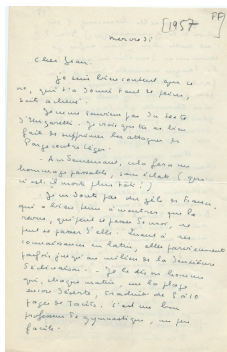 [1957
PF
mercredi
Cher Jean,
Je suis bien content que ce
no, qui t'a donné tant de peine,
soit achevé.
Je ne me souviens pas du texte
d'Ungaretti. Je crois que tu as bien
fait de supprimer les attaques de
contre
fera un
hommage passable, sans éclat (que
n'est-il mort plus tôt!)
Je ne doute pas du zèle de
qui a bien tenu à montrer que la
revue, qui peut se passer de moi, ne
peut se passer d'elle. Quant à ses
connaissances en latin, elles parviennent
parfois jusqu'au milieu de la deuxième
déclinaison. - Je le dis en homme
qui, chaque matin, sur la plage
encore déserte, traduit 8 à 10
pages de Tacite. C'est un bon
professeur de gymnastique, un peu
facile.